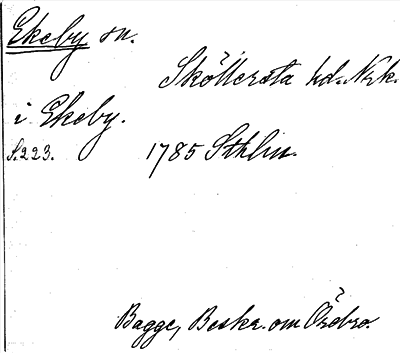 Ekeby sn.
Sköllersta hd. Nrk.
i Ekeby.
S. 223. 1785 Sthlm.
Bagge, Beskr. om Örebro.